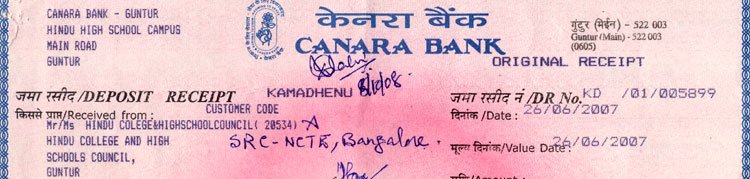 CANARA BANK - GUNTUR
HINDU HIGH SCHOOL CAMPUS
MAIN ROAD
GUNTUR
केनरा बैंक
CANARA BANK
गुंटूर (मेईन) - 522 003
Guntur (Main) - 522 003
(0605)
ORIGINAL RECEIPT
जमा रसीद /DEPOSIT RECEIPT
KAMADHENU 8/10/08
जमा रसीद नं /DR No. KD /01/005899
किससे प्राप्त/Received from:
CUSTOMER CODE
दिनांक /Date: 26/06/2007
Mr/Ms HINDU COLEGE&HIGHSCHOOLCOUNCIL( 20534)
HINDU COLLEGE AND HIGH
SRC-NCTE, Bangalore.
मूल्य दिनांक/Value Date: 26/06/2007
SCHOOLS COUNCIL,
GUNTUR